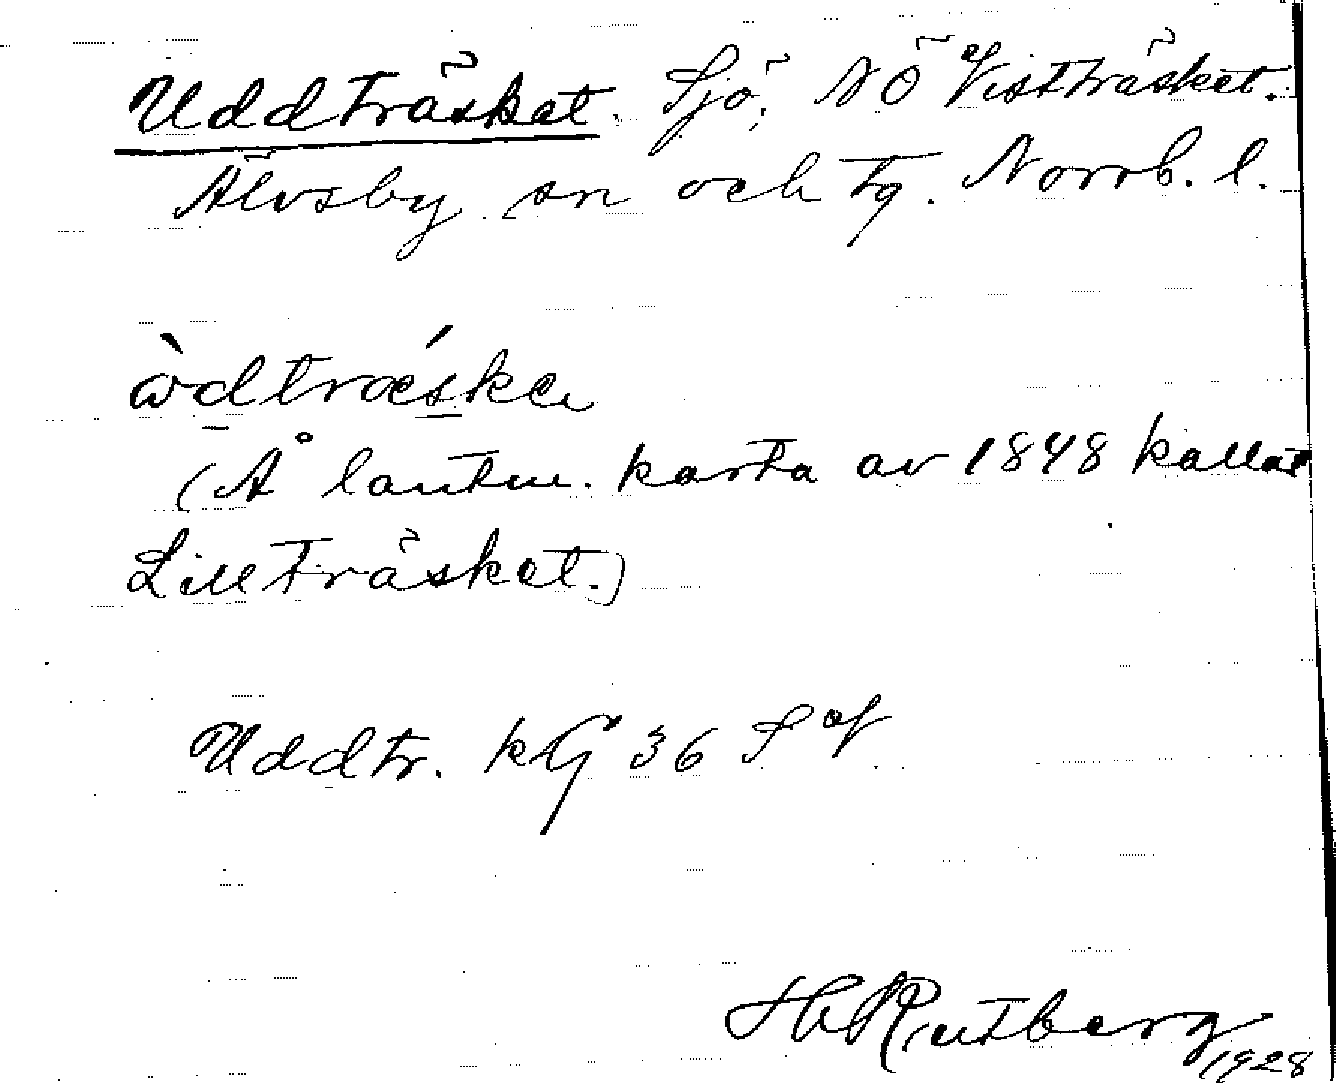 Uddträsket. Sjö, NÖ Vistträsket.
Älvsby sn och tg. Norrb. l.
ωdtræska
(Å lantm. karta av 1848 kallat
Lillträsket.)
Uddtr. kG 36 S of
H Rutberg
1928